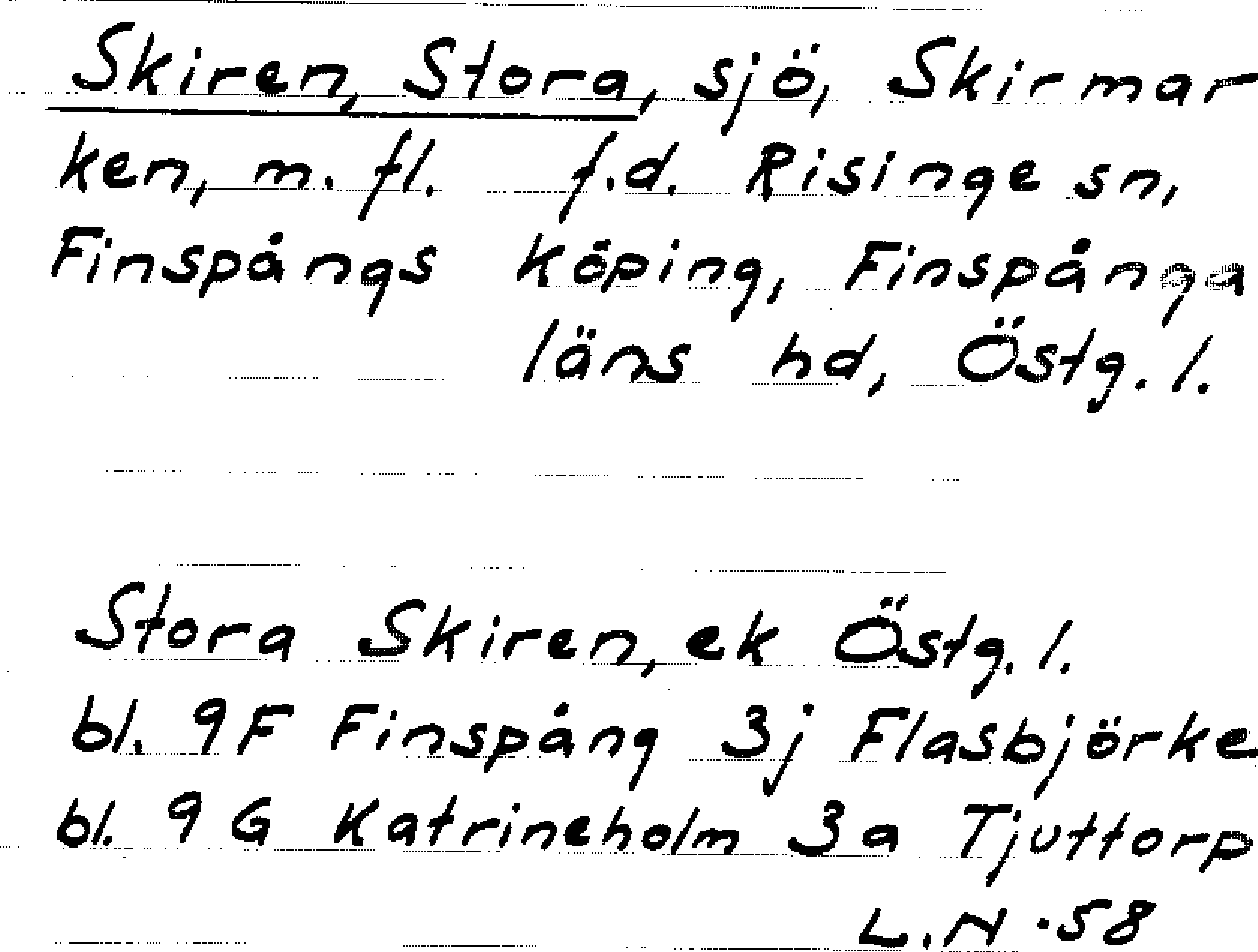 Skiren, Stora, sjö, Skirmar
ken, m. fl. f.d. Risinge sn,
Finspångs köping, Finspånga
läns hd, Östg. l.
Stora Skiren, ek Östg. l.
bl. 9F Finspång 3j Flasbjörke
bl. 9G Katrineholm 3a Tjuttorp
L.N. 58